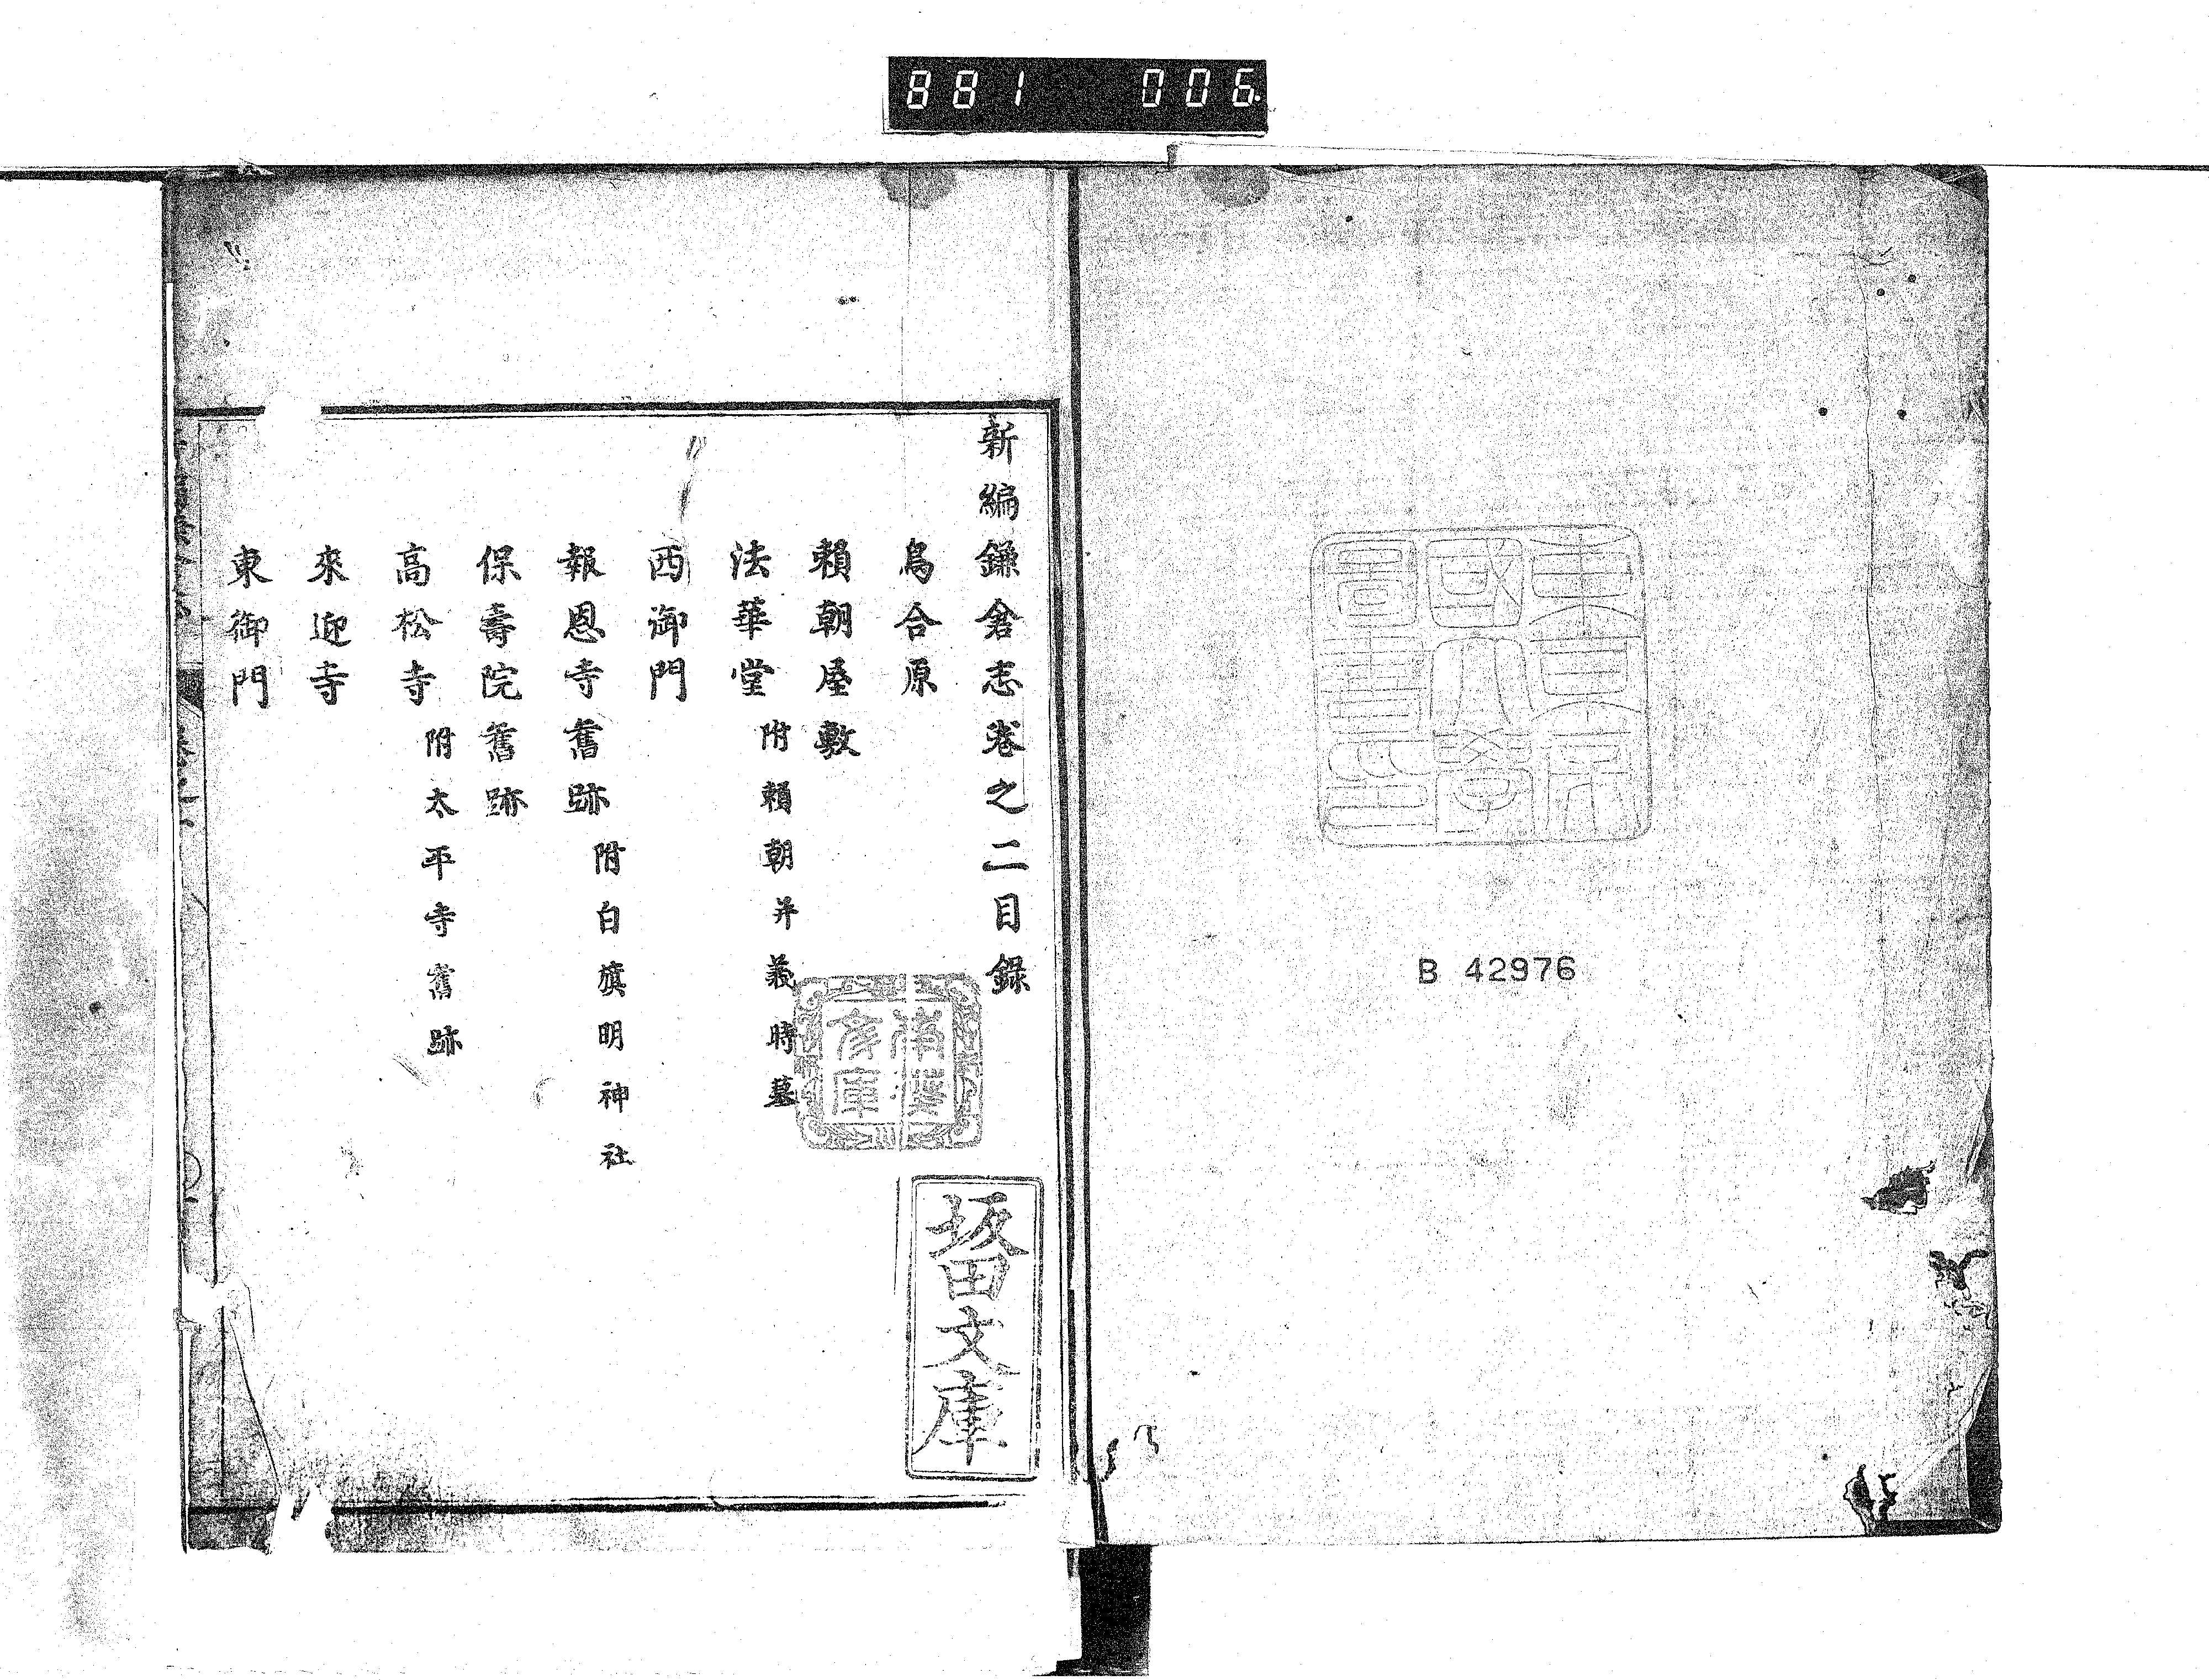 881 006
東京
國大學
圖書印
B 42976
新編鎌倉志卷之二目録
鳥合原
頼朝屋敷
法華堂 附頼朝并義時墓
西御門
報恩寺舊跡 附白旗明神社
保壽院舊跡
高松寺 附太平寺舊跡
來迎寺
東御門
文庫
坂田文庫